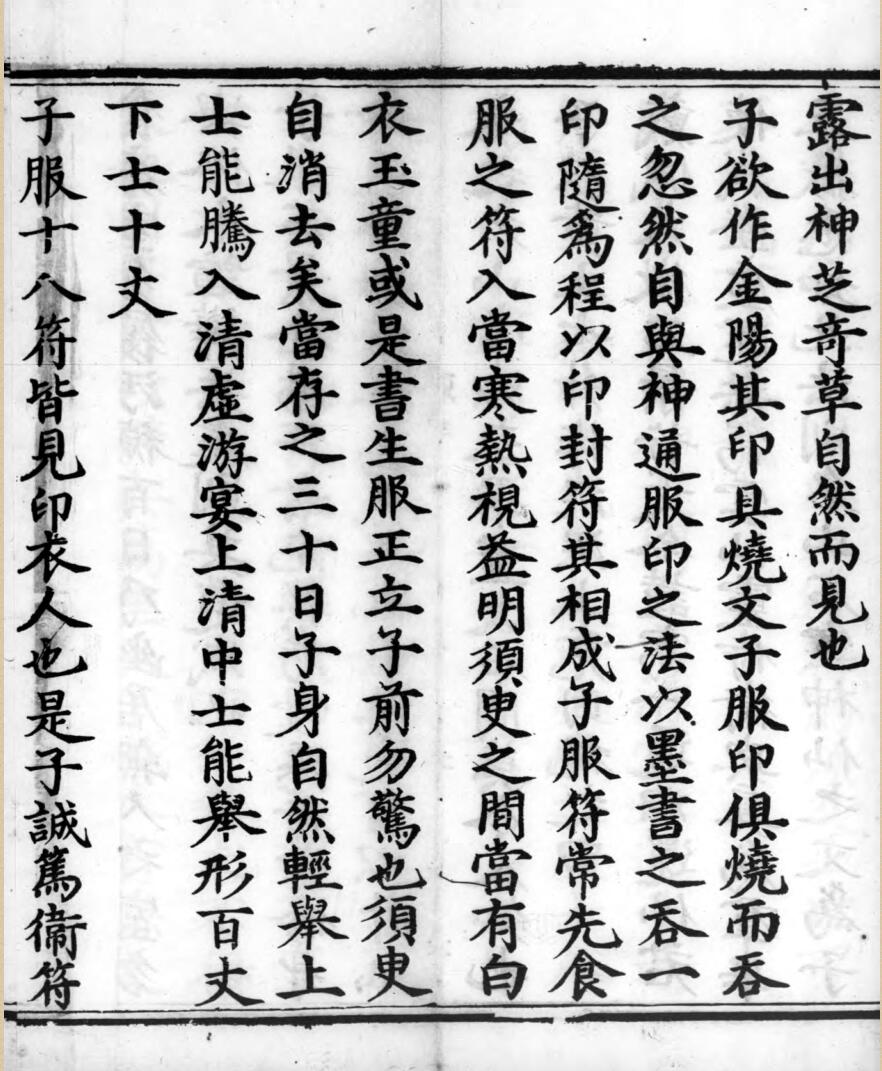 露出神芝竒草自然而見也
子欲作金陽其印具燒文子服印俱燒而吞
之忽然自與神通服印之法以墨書之吞一
印隨爲程以印封符其相成子服符常先食
服之符入當寒熱視益明須臾之間當有白
衣玉童或是書生服正立子前勿驚也須臾
自消去矣當存之三十日子身自然輕舉上
士能騰入清虛游宴上清中士能舉形百丈
下士十丈
子服十八符皆見印衣人也是子誠篤衛符